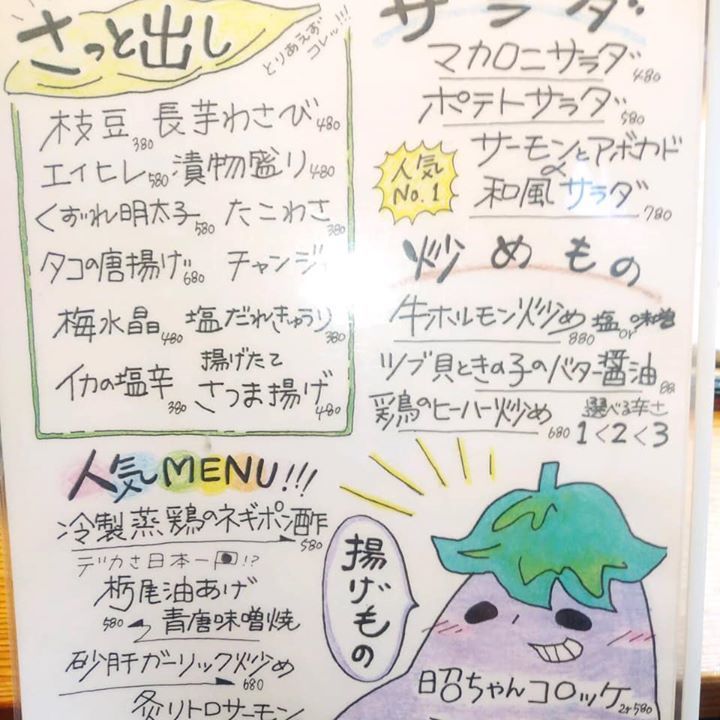 さっと出し
とりあえず
コレッ!!!
枝豆380 長芋わさび480
エイヒレ580 漬物盛り480
くずれ明太子580 たこわさ380
タコの唐揚げ680 チャンジャ
梅水晶480 塩だれきゅうり380
イカの塩辛380
揚げたて
さつま揚げ480
サラダ
マカロニサラダ480
ポテトサラダ580
人気
No.1
サーモンとアボカド
の
和風サラダ780
炒めもの
牛ホルモン炒め880 塩or味噌
ツブ貝ときの子のバター醤油
鶏のヒーハー炒め680
選べる辛さ
1<2<3
人気MENU!!!
冷製蒸鶏のネギポン酢580
デカさ日本一!?
栃尾油あげ
580 青唐味噌焼
砂肝ガーリック炒め680
炙りトロサーモン
揚げもの
昭ちゃんコロッケ2ヶ580